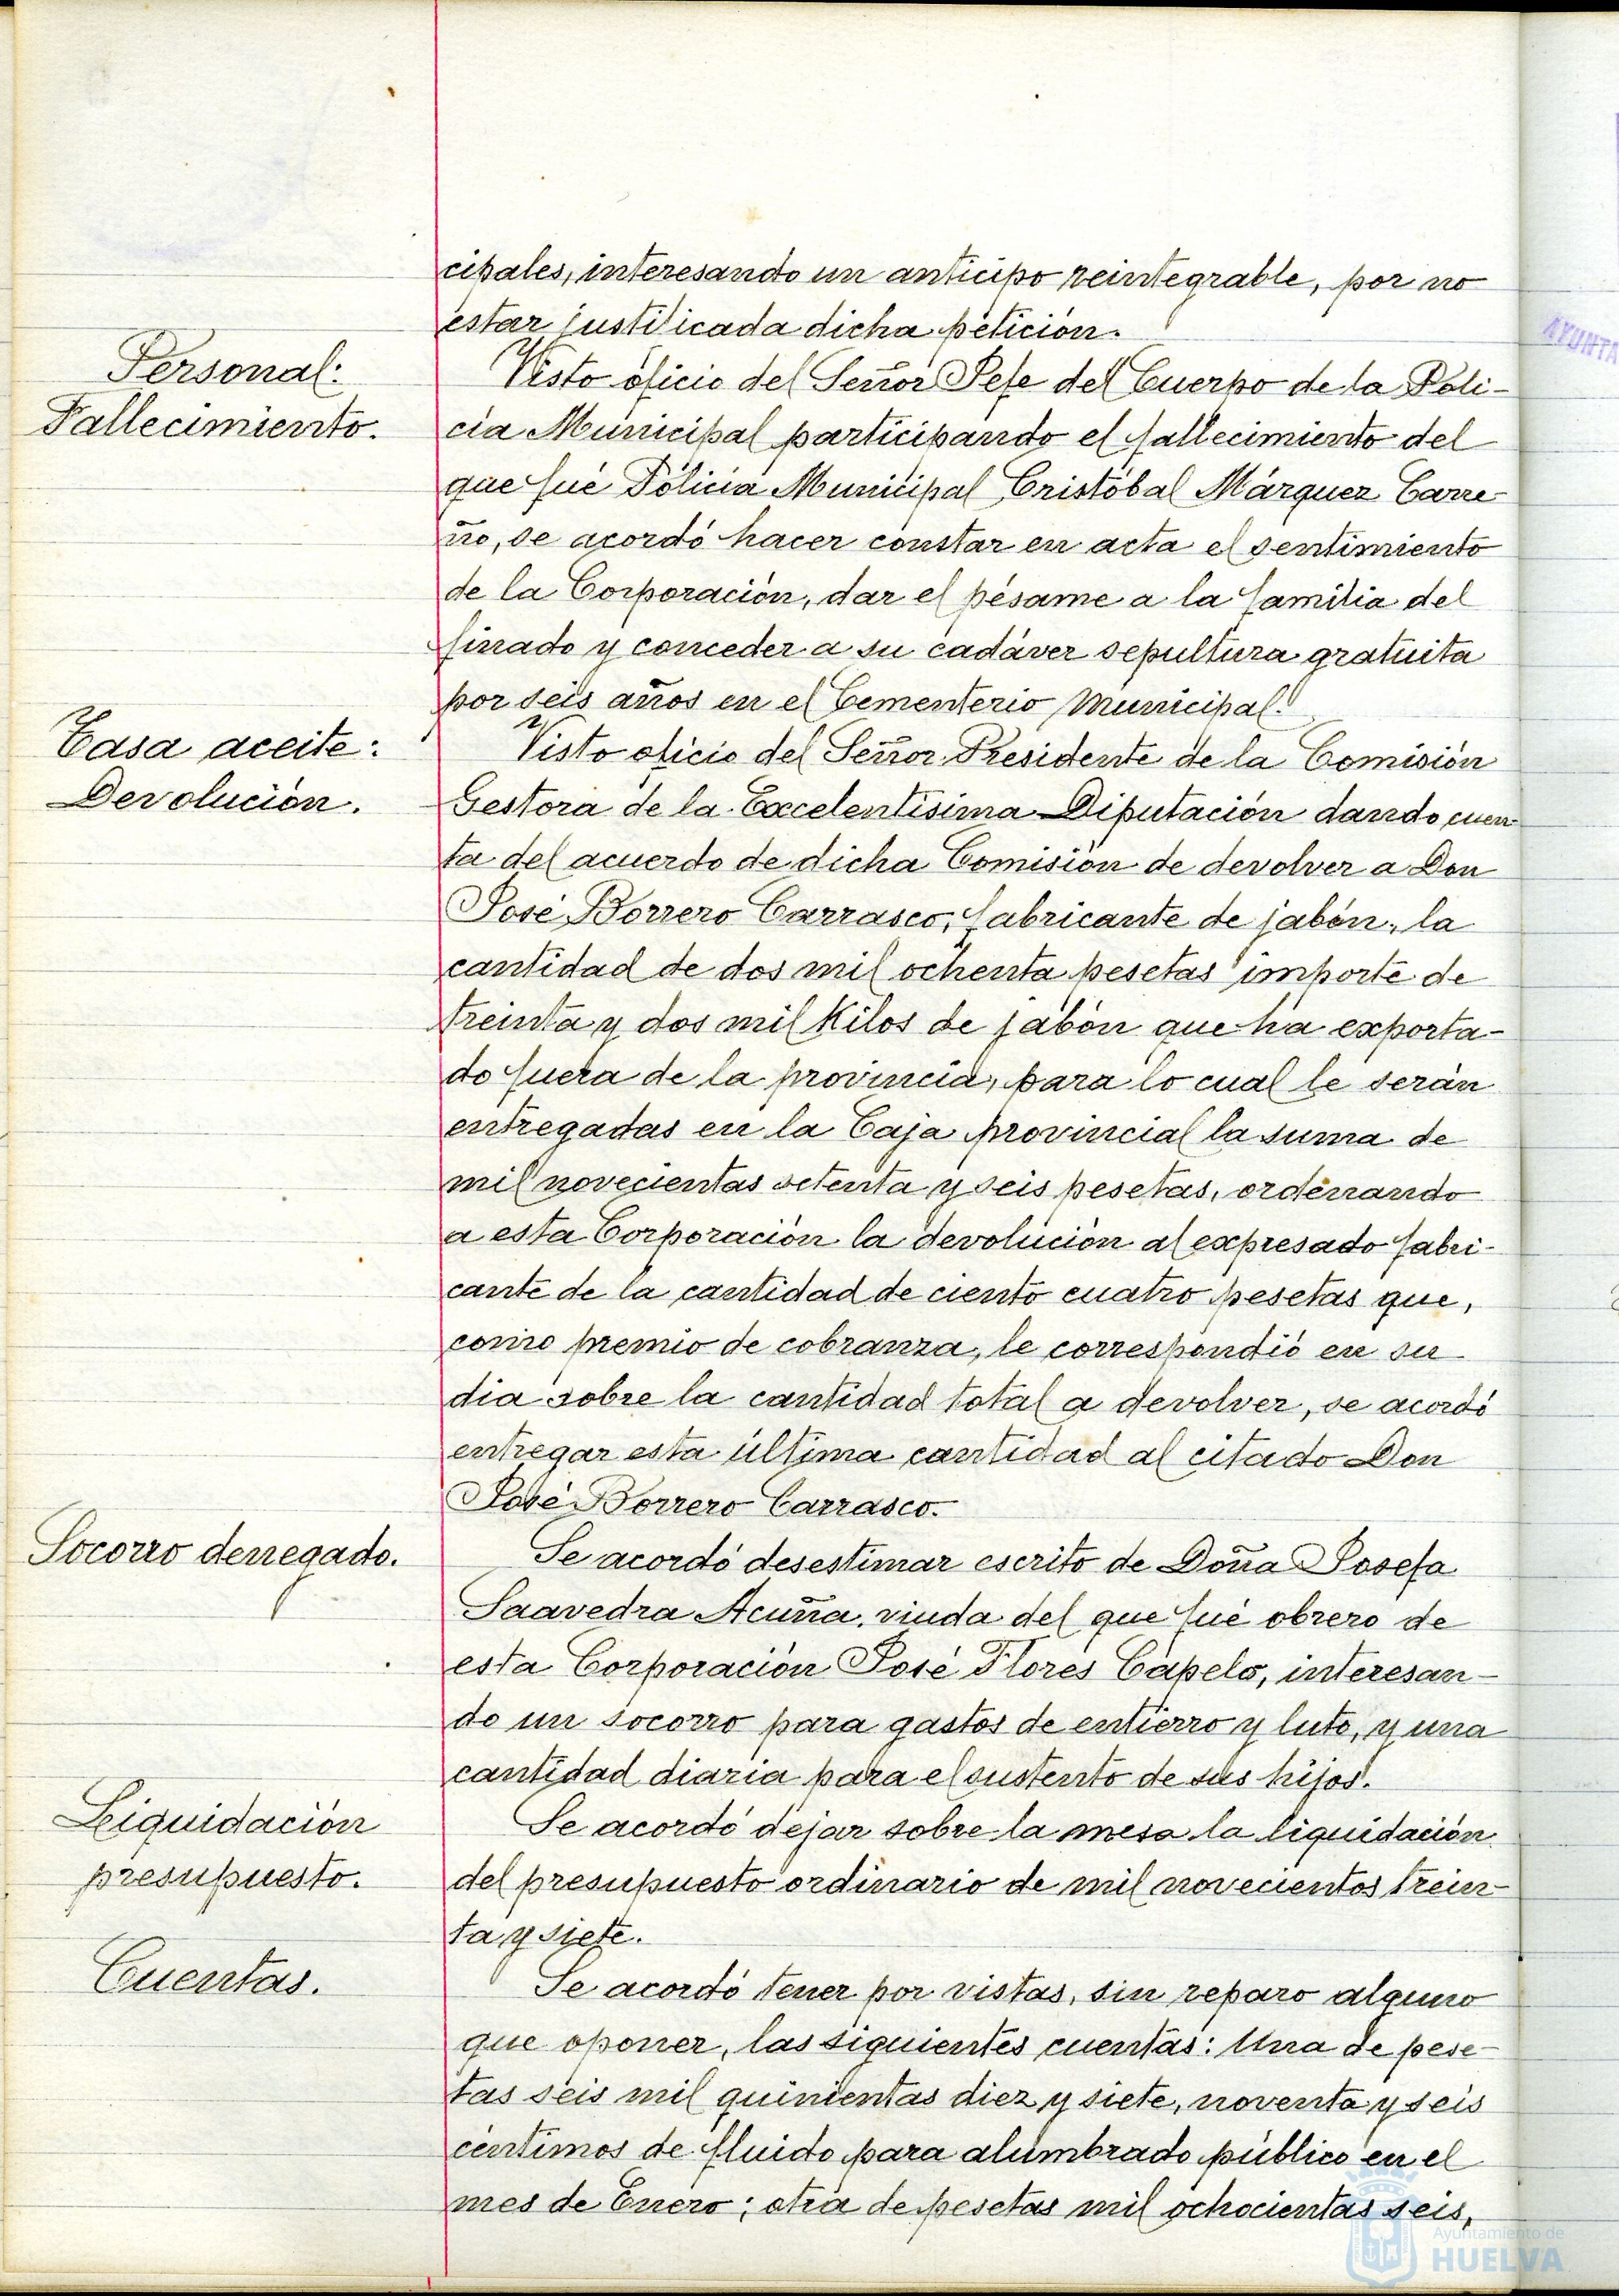 cipales, interesando un anticipo reintegrable, por no
estar justificada dicha petición.
Personal:
Fallecimiento.
Visto oficio del Señor Jefe del Cuerpo de la Poli-
cía Municipal participando el fallecimiento del
que fué Policía Municipal Cristóbal Márquez Carre-
ño, se acordó hacer constar en acta el sentimiento
de la Corporación, dar el pésame a la familia del
finado y conceder a su cadáver sepultura gratuita
por seis años en el Cementerio Municipal.
Tasa aceite:
Devolución.
Visto oficio del Señor Presidente de la Comisión
Gestora de la Excelentísima Diputación dando cuen
ta del acuerdo de dicha Comisión de devolver a Don
José Borrero Carrasco, fabricante de jabón, la
cantidad de dos mil ochenta pesetas importe de
treinta y dos mil kilos de jabón que ha exporta-
do fuera de la provincia, para lo cual le serán
entregadas en la Caja provincial la suma de
mil novecientas setenta y seis pesetas, ordenando
a esta Corporación la devolución al expresado fabri-
cante de la cantidad de ciento cuatro pesetas que,
como premio de cobranza, le correspondió en su
día sobre la cantidad total a devolver, se acordó
entregar esta última cantidad al citado Don
José Borrero Carrasco.
Socorro denegado.
Se acordó desestimar escrito de Doña Josefa
Saavedra Acuña, viuda del que fué obrero de
esta Corporación José Flores Capelo, interesan-
do un socorro para gastos de entierro y luto, y una
cantidad diaria para el sustento de sus hijos.
Liquidación
presupuesto.
Se acordó dejar sobre la mesa la liquidación
del presupuesto ordinario de mil novecientos trein-
ta y siete.
Cuentas.
Se acordó tener por vistas, sin reparo alguno
que oponer, las siguientes cuentas: Una de pese-
tas seis mil quinientas diez y siete, noventa y seis
céntimos de fluido para alumbrado público en el
mes de Enero; otra de pesetas mil ochocientas seis,
Ayuntamiento de
HUELVA
AYUNTA